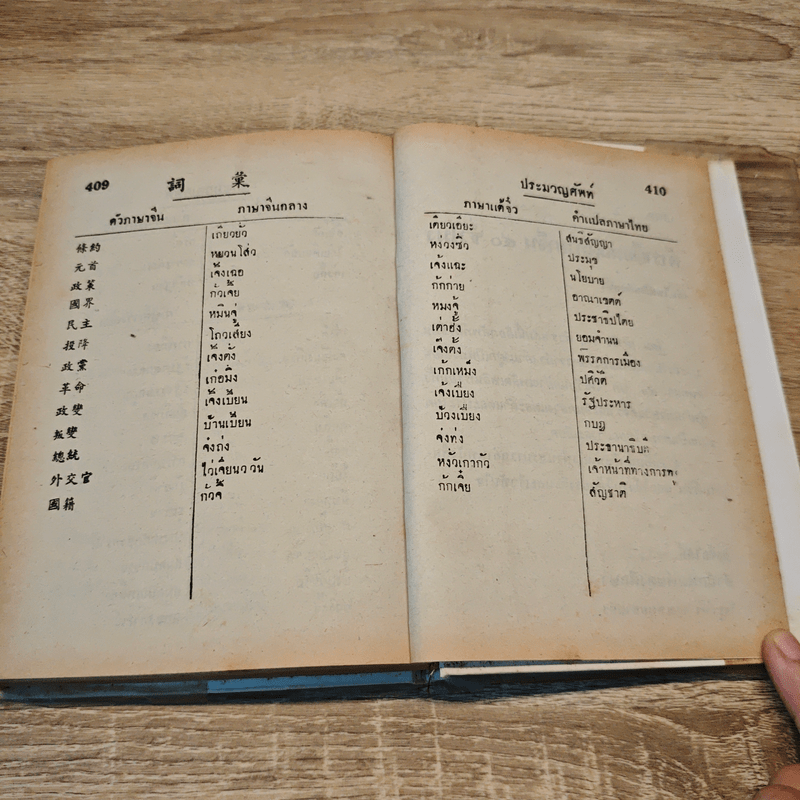 409 詞 彙
ตัวภาษาจีน ภาษาจีนกลาง
條約 เถียวยัว
元首 หยวนโส่ว
政策 เจิ้งเฉอ
國界 กั๋วเจีย
民主 หมินจู่
投降 โถวเสียง
政黨 เจิ้งตั่ง
革命 เก๋อมิ่ง
政變 เจิ้งเปียน
叛變 บ้านเปียน
總統 จ่งถ่ง
外交官 ไว่เจียนววัน
國籍 ก๋วจี๋
ประมวญศัพท์ 410
ภาษาแต้จิ๋ว คำแปลภาษาไทย
เตียวเอียะ สนธิสัญญา
หง่วงซิ่ว ประมุข
เจ้งแฉะ นโยบาย
กักก่าย อาณาเขตต์
หมงจู้ ประชาธิปไตย
เต่าฮั้ง ยอมจำนน
เจ็งตั้ง พรรคการเมือง
เก้กเหม็ง ปติวัติ
เจ้งเปี่ยง รัฐประหาร
บ้วงเปี่ยง กบฏ
จ่งท่ง ประธานาธิบดี
หงั่วเกากัว เจ้าหน้าที่ทางการทูต
กักเจี๊ย สัญชาติ